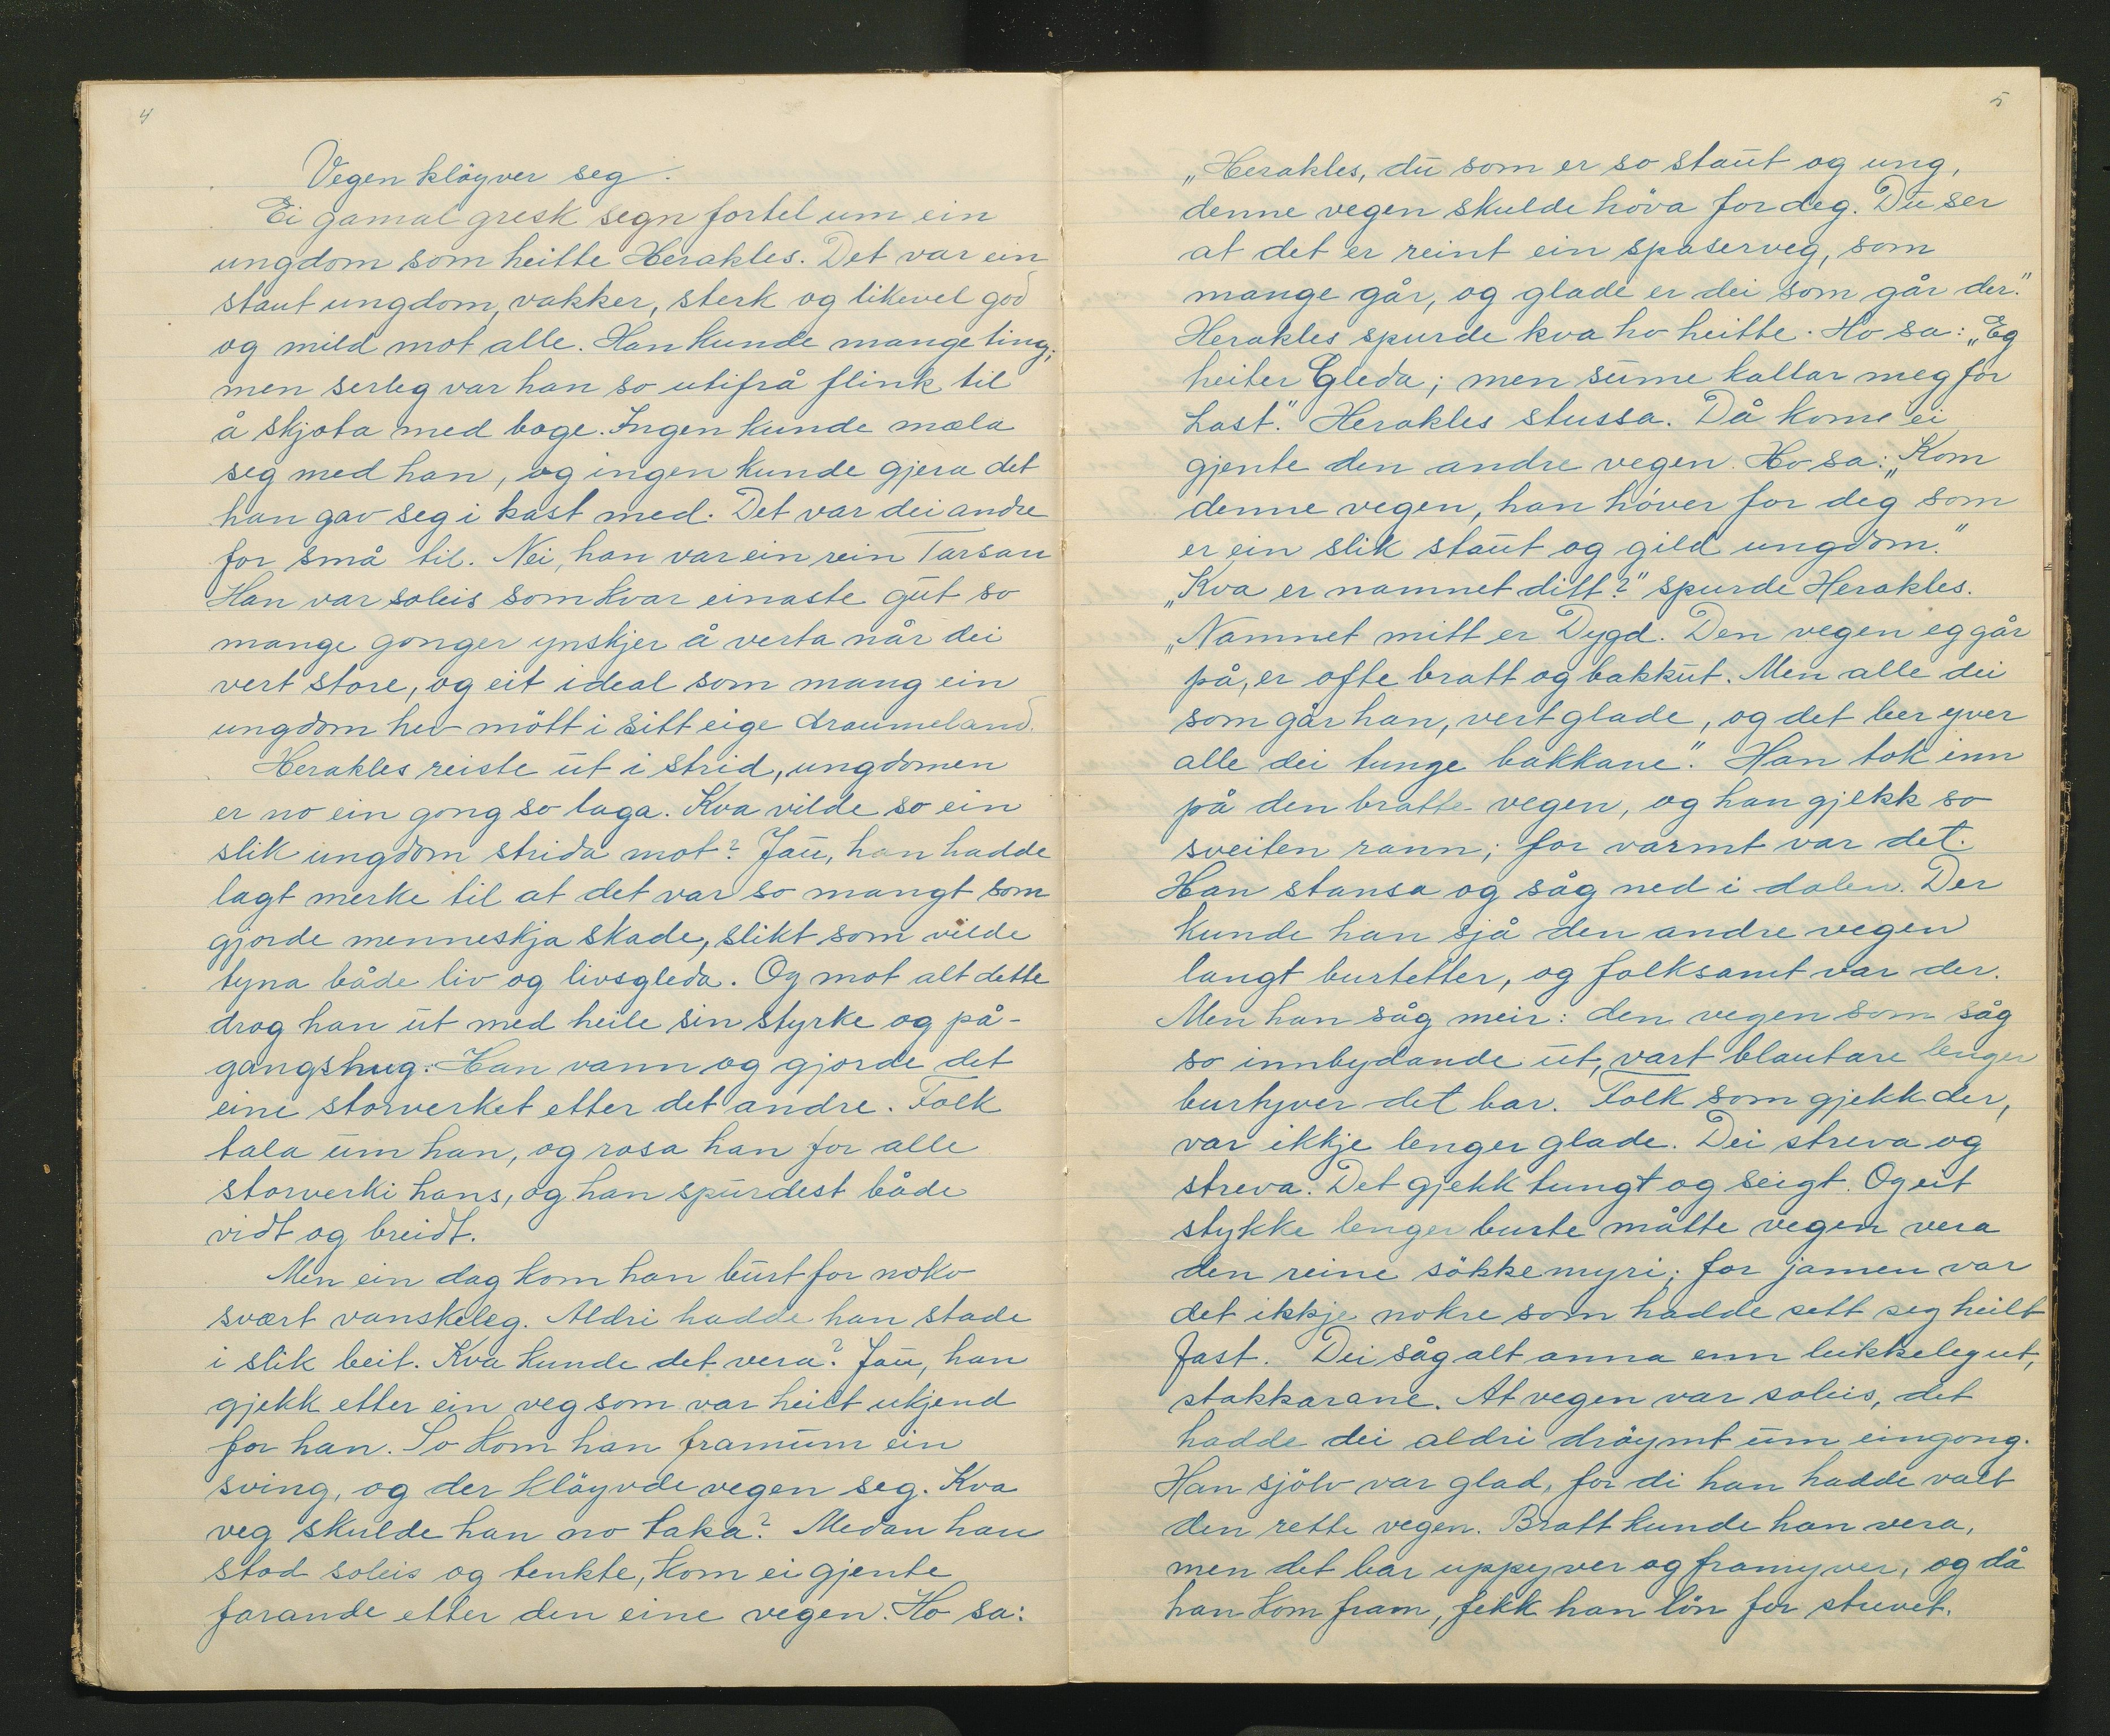 4
Vegen kløyver seg.
Ei gamal gresk segn fortel um ein
ungdom som heitte Herakles. Det var ein
staut ungdom, vakker, sterk og likevel god
og mild mot alle. Han kunde mange ting;
men serleg var han so utifrå flink til
å skjota med boge. Ingen kunde mæla
seg med han, og ingen kunde gjera det
han gav seg i kast med. Det var dei andre
for små til. Nei, han var ein rein Tarsan
Han var soleis som kvar einaste gut so
mange gonger ynskjer å verta når dei
vert store, og eit ideal som mang ein
ungdom hev møtt i sitt eige draumeland.
Herakles reiste ut i strid, ungdomen
er no ein gong so laga. Kva vilde so ein
slik ungdom strida mot? Jau, han hadde
lagt merke til at det var so mangt som
gjorde menneskja skade, slikt som vilde
tyna både liv og livsgleda. Og mot alt dette
drog han ut med heile sin styrke og på-
gangshug. Han vann og gjorde det
eine storverket etter det andre. Folk
tala um han, og rosa han for alle
storverki hans, og han spurdest både
vidt og breidt.
Men ein dag kom han burt for noko
svært vanskeleg. Aldri hadde han stade
i slik beit. Kva kunde det vera? Jau, han
gjekk etter ein veg som var heilt ukjend
for han. So kom han framum ein
sving, og der kløyvde vegen seg. Kva
veg skulde han no taka? Medan han
stod soleis og tenkte, kom ei gjente
farande etter den eine vegen. Ho sa:
5
„Herakles, du som er so staut og ung,
denne vegen skulde høva for deg. Du ser
at det er reint ein spaserveg, som
mange går, og glade er dei som går der."
Herakles spurde kva ho heitte. Ho sa: „Eg
heiter Gleda; men sume kallar meg for
Last." Herakles stussa. Då kom ei
gjente den andre vegen. Ho sa: „Kom
denne vegen, han høver for deg som
er ein slik staut og gild ungdom."
„Kva er namnet ditt?" spurde Herakles.
„Namnet mitt er Dygd. Den vegen eg går
på, er ofte bratt og bakkut. Men alle dei
som går han, vert glade, og det ber yver
alle dei tunge bakkane". Han tok inn
på den bratte vegen, og han gjekk so
sveiten rann; for varmt var det.
Han stansa og såg ned i dalen. Der
kunde han sjå den andre vegen
langt burtetter, og folksamt var der.
Men han såg meir: den vegen som såg
so innbydande ut, vart blautare lenger
burtyver det bar. Folk som gjekk der,
var ikkje lenger glade. Dei streva og
streva. Det gjekk tungt og seigt. Og eit
stykke lenger burte måtte vegen vera
den reine søkkemyri; for jamen var
det ikkje nokre som hadde sett seg heilt
fast. Dei såg alt anna enn lukkeleg ut,
stakkarane. At vegen var soleis, det
hadde dei aldri drøymt um eingong.
Han sjølv var glad, for di han hadde valt
den rette vegen. Bratt kunde han vera,
men det bar uppyver og framyver, og då
han kom fram, fekk han løn for strevet.